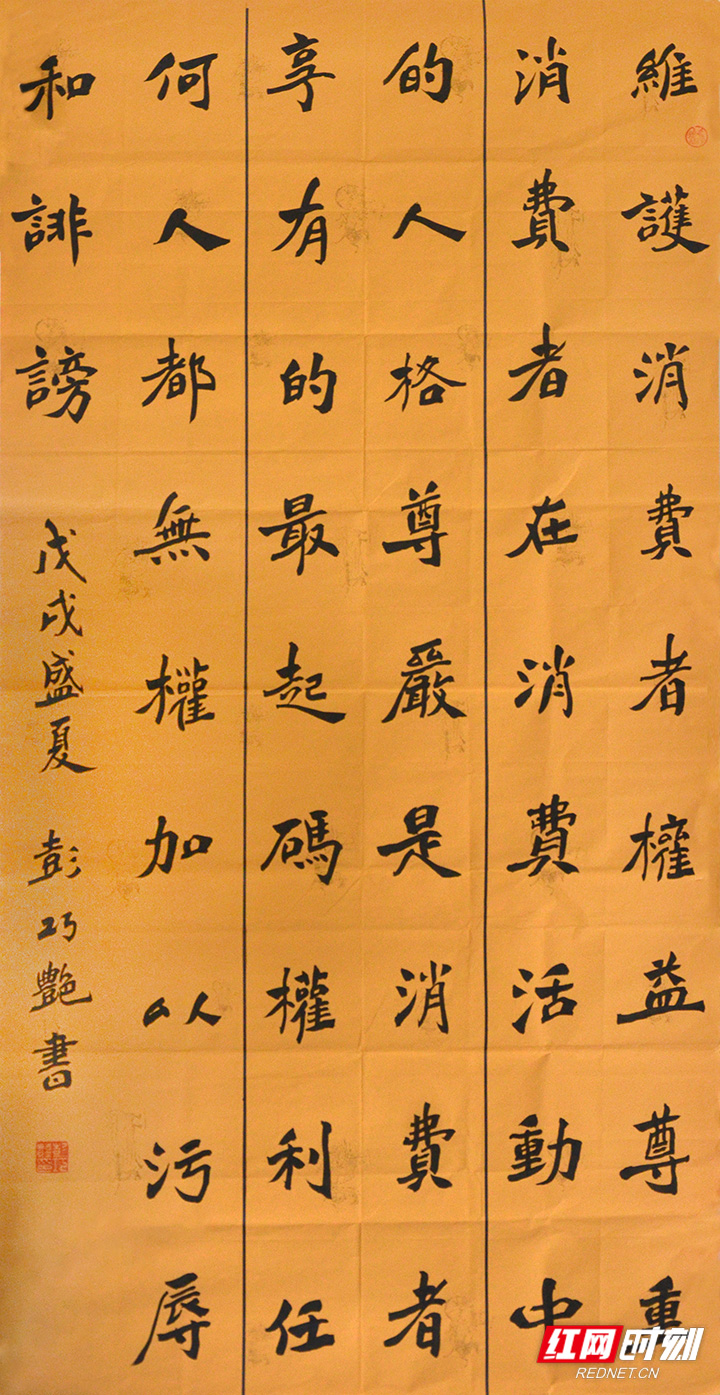 維護消費者權益尊重
消費者在消費活動中
的人格尊嚴是消費者
享有的最起碼權利任
何人都無權加以污辱
和誹謗
戊戌盛夏 彭巧艷書
红网时刻
REDNET.CN